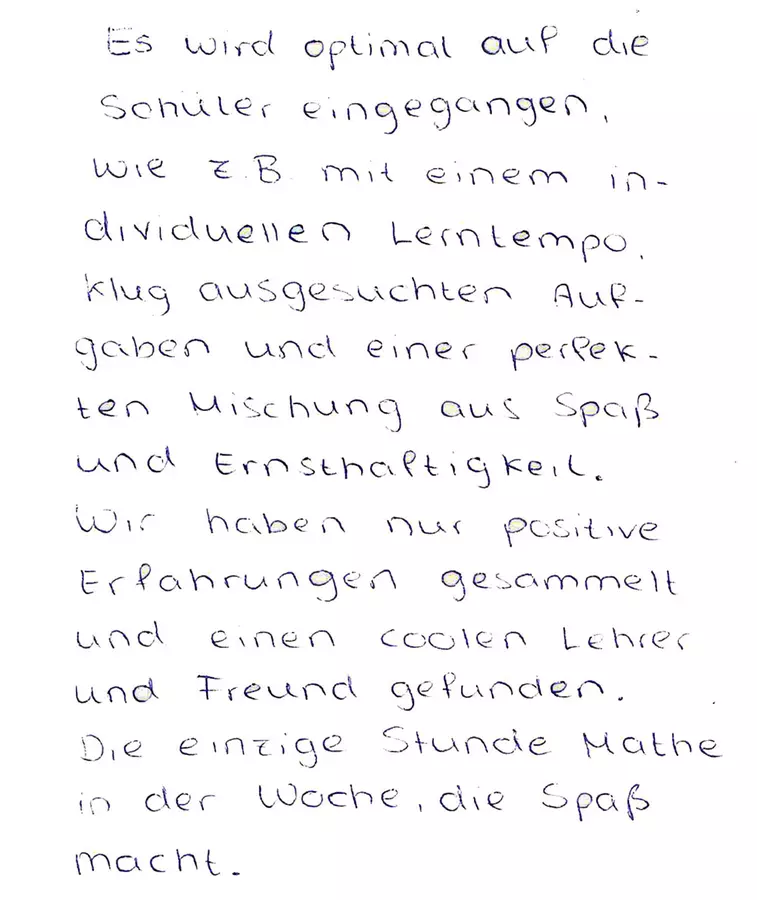 Es wird optimal auf die
Schüler eingegangen,
wie z.B. mit einem in-
dividuellen Lerntempo,
klug ausgesuchten Auf-
gaben und einer perfek-
ten Mischung aus Spaß
und Ernsthaftigkeit.
Wir haben nur positive
Erfahrungen gesammelt
und einen coolen Lehrer
und Freund gefunden.
Die einzige Stunde Mathe
in der Woche, die Spaß
macht.